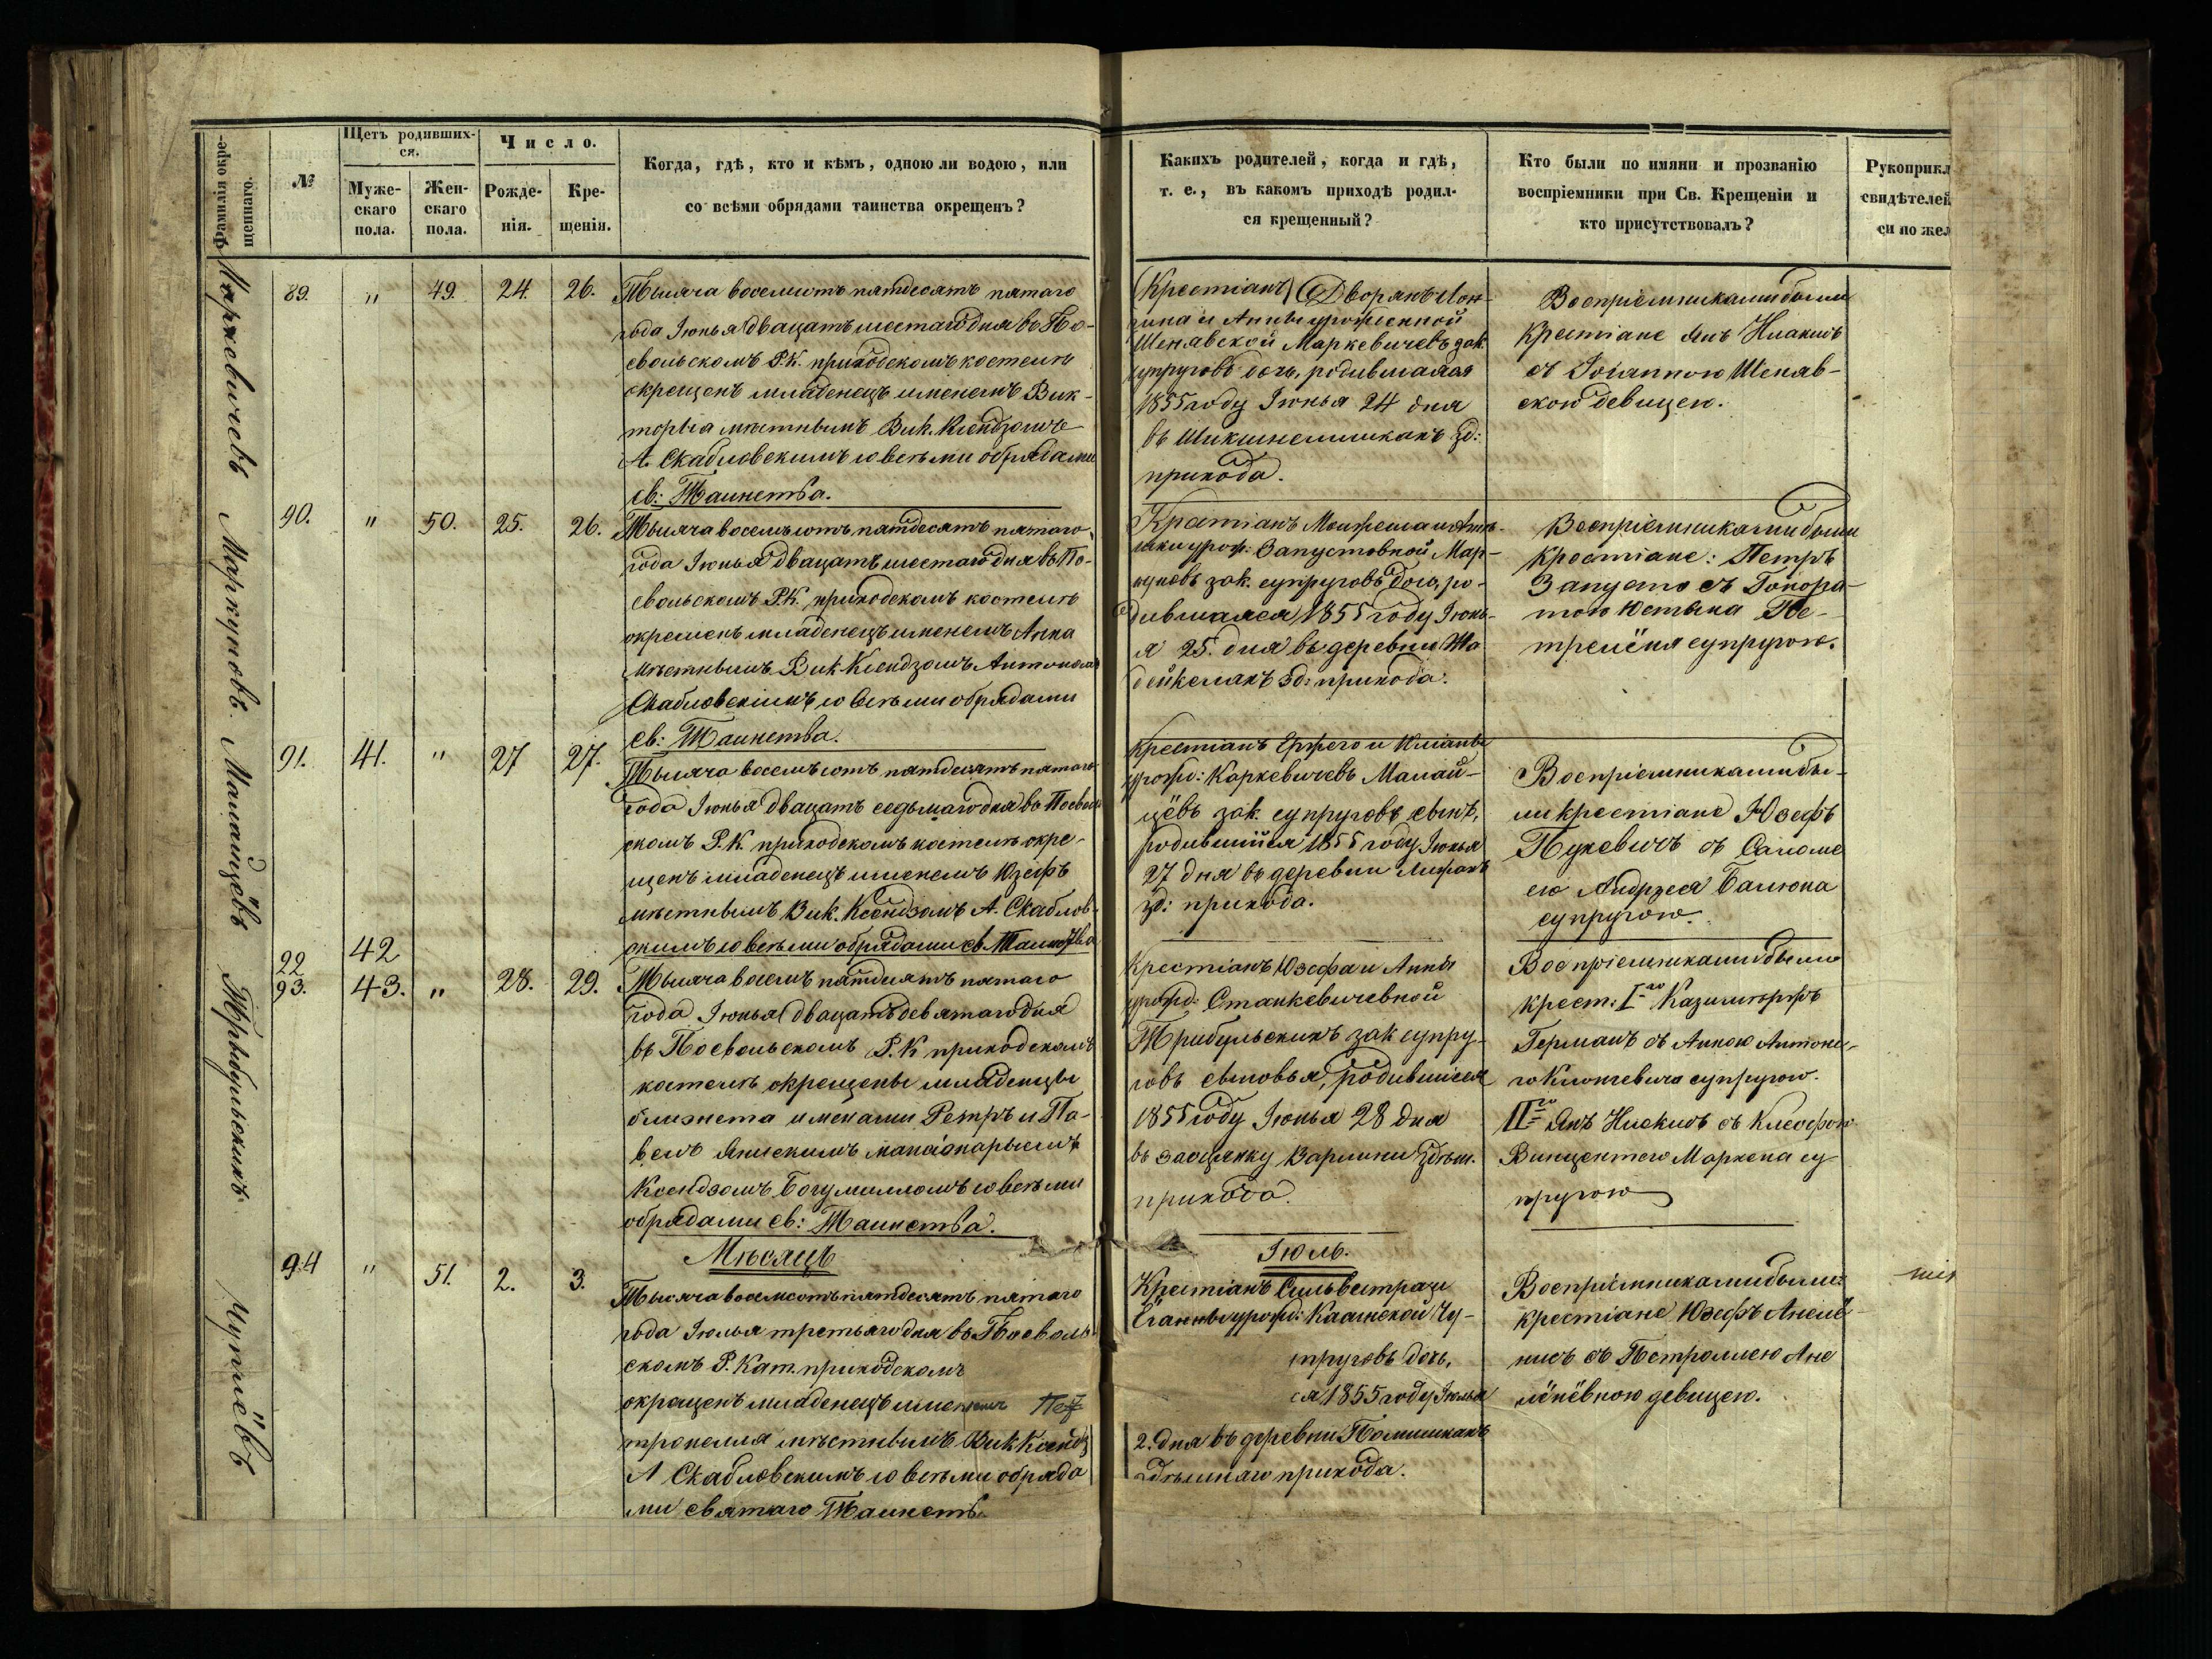 Фамилія окре-
щеннаго.
№
Щетъ родивших-
ся.
Муже-
скаго
пола.
Жен-
скаго
пола.
Число.
Рожде-
нія.
Кре-
щенія.
Когда, гдѣ, кто и кѣмъ, одною ли водою, или
со всѣми обрядами таинства окрещенъ?
Какихъ родителей, когда и гдѣ,
т. е., въ какомъ приходѣ родил-
ся крещенный?
Кто были по имяни и прозванію
воспріемники при Св. Крещеніи и
кто присутствовалъ?
Рукоприкл
свидѣтелей
си по жел
Маркевичовъ
89. " 49. 24. 26.
Тысяча восемсотъ пятдесятъ пятаго
года Іюнья двацать шестаго дня въ По-
свольскомъ Р.К. приходскомъ костелѣ
окрещенъ младенецъ именемъ Вик-
торыа мѣстнымъ Вик. Ксендзомъ
А. Скабловскимъ со всѣми обрядами
св: Таинства.
(Крестіанъ) Дворянъ Лон-
гина и Анны урожденной
Шенявской Маркевичевъ зак
супруговъ дочь, родившаяся
1855 году Іюнья 24 дня
въ Шикшнелишкахъ зд:
прихода.
Воспріемниками были
крестіане Янъ
съ Іоанною Шеняв-
скою девицею.
Маркуновъ.
90. " 50. 25. 26.
Тысяча восемъсотъ пятдесятъ пятаго
года Іюнья двацать шестаго дня въ По-
свольскомъ Р.К. приходскомъ костелѣ
окрещенъ младенецъ именемъ Анна
мѣстнымъ Вик. Ксендзомъ Антономъ
Скабловскимъ со всѣми обрядами
св: Таинства.
Крестіанъ
урож: Запустовной Мар-
куновъ зак. супруговъ дочь, ро-
дившаяся 1855 году Іюнь-
я 25. дня въ деревни Жа
дейкелахъ зд: прихода.
Воспріемниками были
крестіане: Петръ
Запуста съ Гонора-
тою Юстына Пе-
трелёна супругою.
Малайцёвъ
91. 41. " 27 27.
Тысяча восемъсотъ пятдесятъ пятаго
года Іюнья двацать седьмаго дня въ Посволь
скомъ Р.К приходскомъ костелѣ окре-
щенъ младенецъ именемъ Юзефъ
мѣстнымъ Вик. Ксендзомъ А. Скаблов-
скимъ со всѣми обрядами св. Таинства
Крестіанъ Ержего и Юліаны
урожд: Каркевичевъ Малай-
цёвъ зак. супруговъ сынъ,
родившійся 1855 году Іюнья
27 дня въ деревни
зд: прихода.
Воспріемниками бы-
ли крестіане Юзефъ
Пукевичъ съ Саломе
ею Андржея Балюна
супругою.
Трыбульскихъ
22 42
93. 43. " 28. 29.
Тысяча восемъ пятдесятъ пятаго
года Іюнья двацать девятаго дня
въ Посвольскомъ Р.К приходскомъ
костелѣ окрещены младенцы
близнета именами Петръ и Па-
велъ
Ксендзомъ Богумилломъ со всѣми
обрядами св: Таинства.
Крестіанъ Юзефа и Анны
урожд: Станкевичевной
Трибульскихъ зак супру-
говъ сыновья, родившіеся
1855 году Іюнья 28 дня
въ засценку здѣш.
прихода.
Воспріемниками были
крест: I-го Казимержъ
Германъ съ Анною Антоне-
го супругою.
II-го Янъ съ Клеофою
Винцентего Маркена су
пругою
Мѣсяцъ
Іюль.
94 " 51. 2. 3.
Тысяча восемсотъ пятдесятъ пятаго
года Іюлья третьяго дня въ Посволь-
скомъ Р. Кат. приходскомъ
окрещенъ младенецъ именемъ Пе
тронелля мѣстнымъ Вик Ксендз
А Скабловскимъ со всѣми обряда
ми святаго Таинств.
Крестіанъ Сильвестра и
Еоанны урожд: Чу-
пруговъ дочь,
ся 1855 году Іюлья
2. дня въ деревни
здѣшнаго прихода.
Воспріемниками были:
крестіане Юзефъ Анелё
нисъ съ Петролнею Ане
лёнёвною девицею.